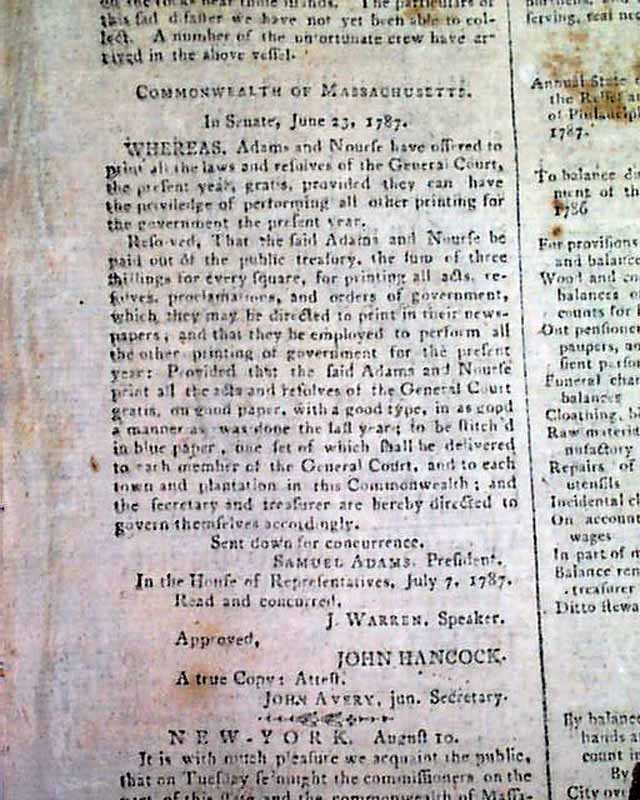 on the rocks near those islands. The particulars of
this sad disaster we have not yet been able to col-
lect. A number of the unfortunate crew have ar-
rived in the above vessel.
COMMONWEALTH OF MASSACHUSETTS.
In Senate, June 23, 1787.
WHEREAS, Adams and Nourse have offered to
print all the laws and resolves of the General Court,
the present year, gratis, provided they can have
the priviledge of performing all other printing for
the government the present year.
Resolved, That the said Adams and Nourse be
paid out of the public treasury, the sum of three
shillings for every square, for printing all acts, re-
solves, proclamations, and orders of government,
which they may be directed to print in their news-
papers; and that they be employed to perform all
the other printing of government for the present
year: Provided that the said Adams and Nourse
print all the acts and resolves of the General Court
gratis, on good paper, with a good type, in as good
a manner as was done the last year; to be stitch'd
in blue paper, one set of which shall be delivered
to each member of the General Court, and to each
town and plantation in this Commonwealth; and
the secretary and treasurer are hereby directed to
govern themselves accordingly.
Sent down for concurrence.
SAMUEL ADAMS, President.
In the House of Representatives, July 7, 1787.
Read and concurred,
J. WARREN, Speaker.
Approved,
JOHN HANCOCK.
A true Copy: Attest.
JOHN AVERY, jun. Secretary.
NEW-YORK, August 10.
It is with much pleasure we acquaint the public,
that on Tuesday se'nnight the commissioners on the
part of this state and the commonwealth of Massa-
serving, real
Annual State
the Relief an
of Philadelp
1787.
To balance du
ment of th
1786
For provisions
and balance
Wood and co
balances o
counts for
Out pensione
paupers, an
sient perso
Funeral char
balances
Cloathing,
Raw materi
nufactory
Repairs of
utensils
Incidental c
On account
wages
In part of
Balance ren
treasurer
Ditto stewa
By balance
hands a
count in
By
City ove